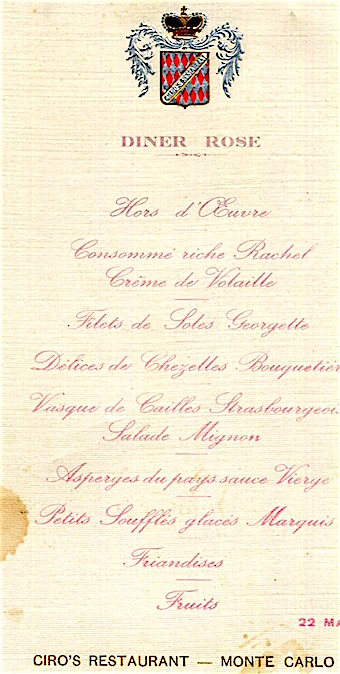 DINER ROSE
Hors d'Œuvre
Consommé riche Rachel
Crême de Volaille
Filets de Soles Georgette
Délices de Chezelles Bouquetièr
Vasque de Cailles Strasbourgeois
Salade Mignon
Asperges du pays sauce Vierge
Petits Soufflés glacés Marquis
Friandises
Fruits
22 MA
CIRO'S RESTAURANT — MONTE CARLO